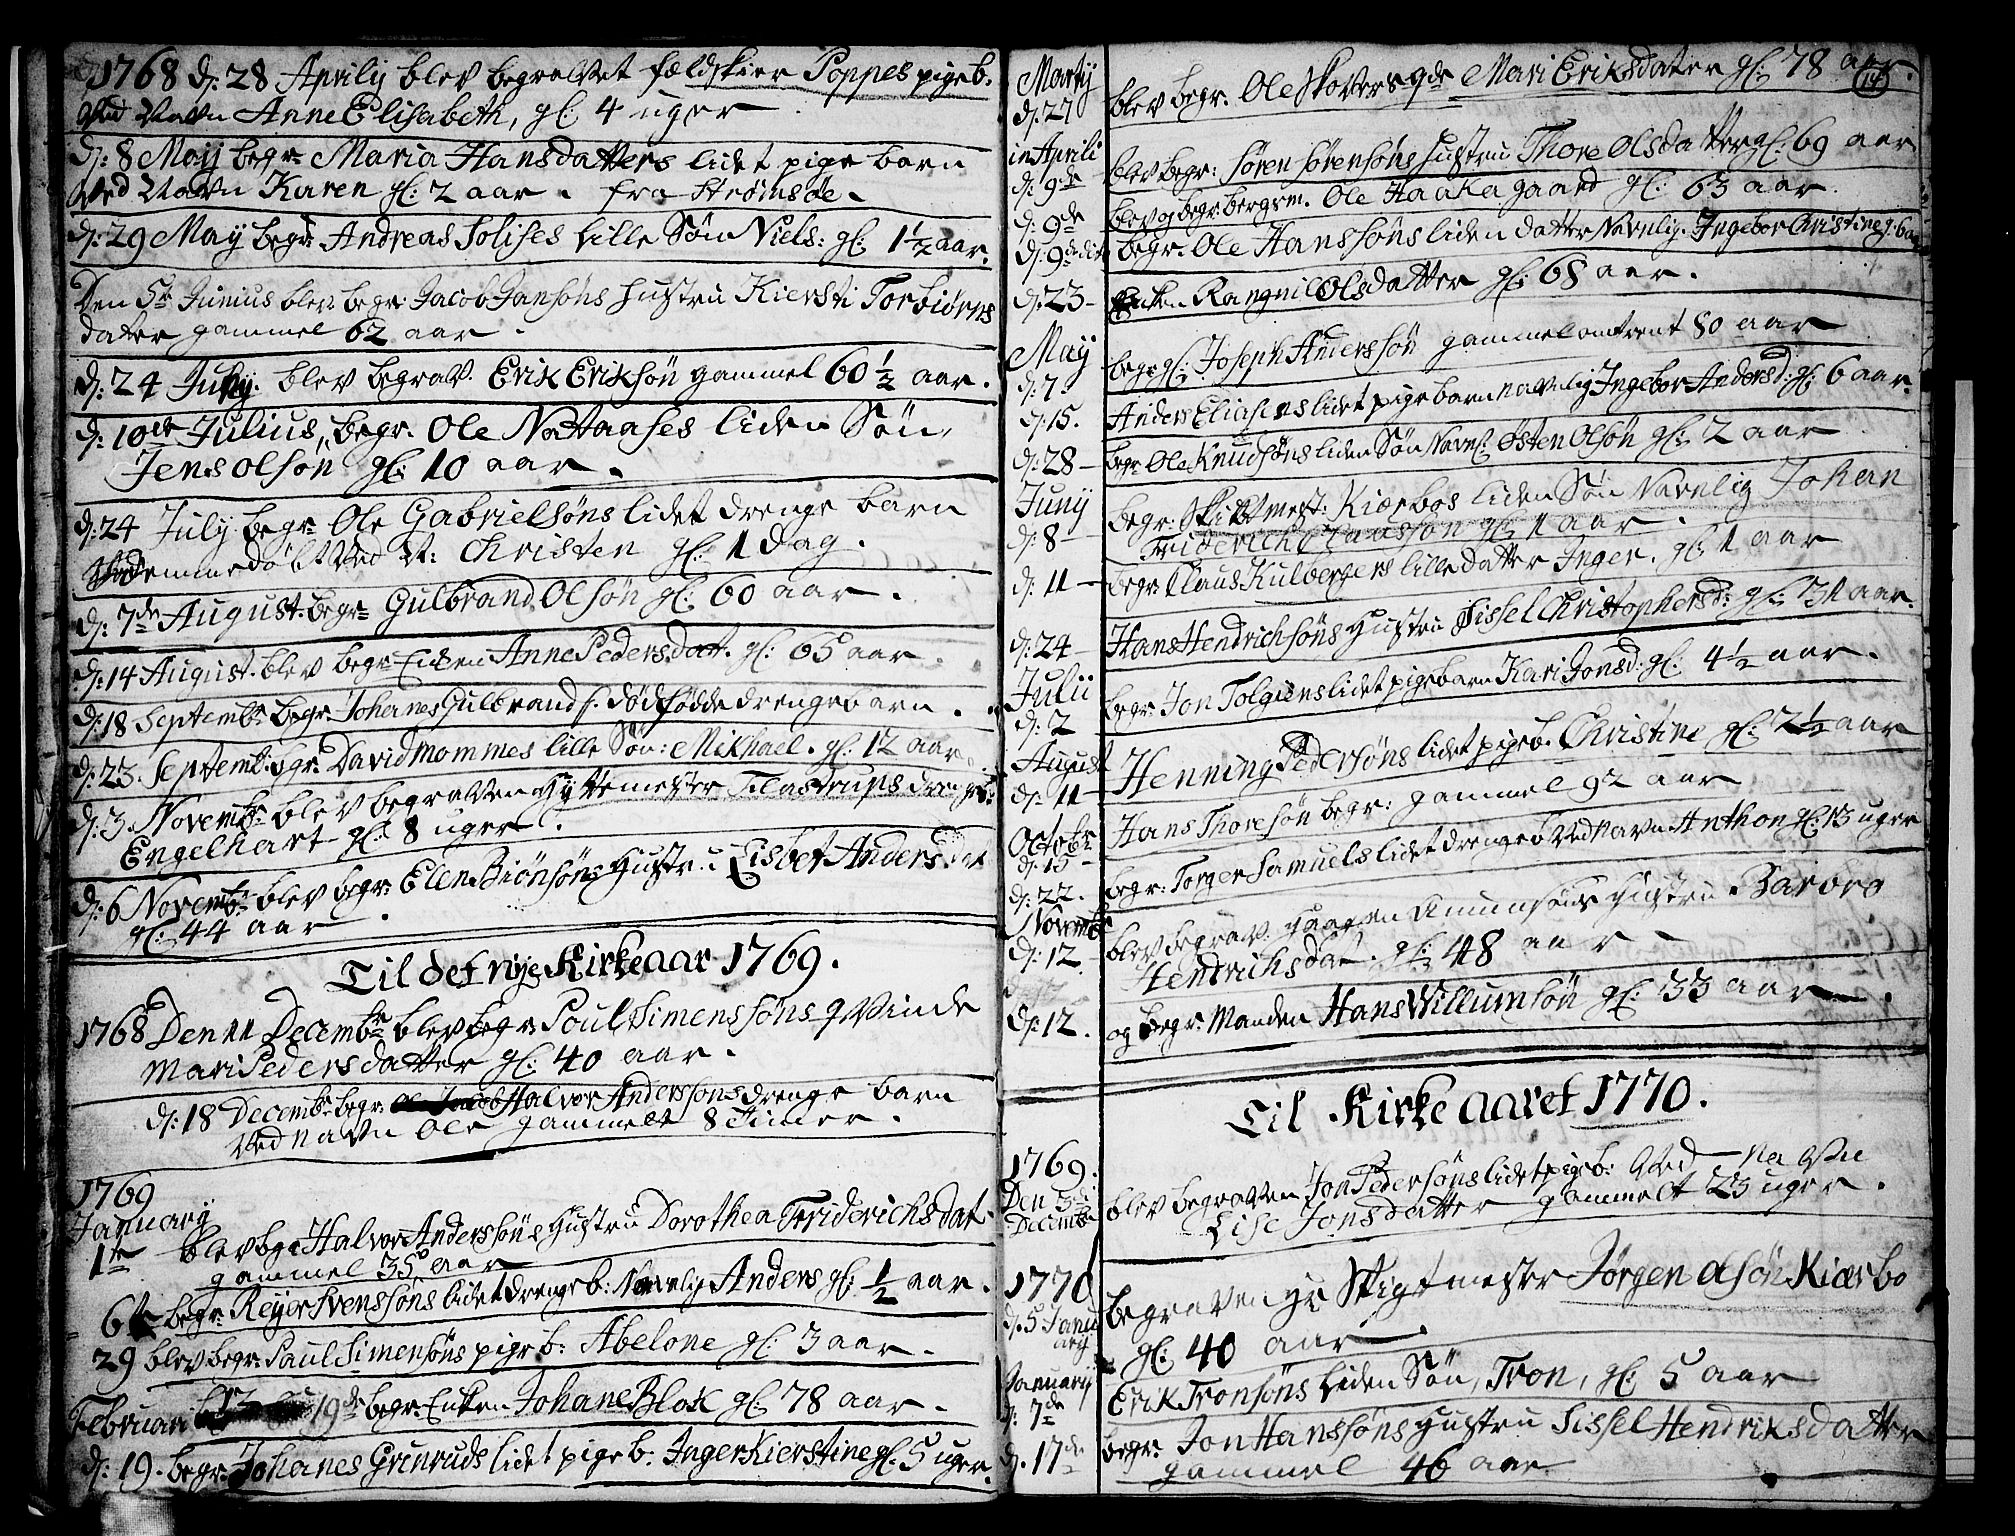 1768 d: 28 Aprilij blev begravet fældskier Poppes pigeb.
ved Navn Anne Elisabeth, gl: 4 uger
d: 8 Maij begr: Maria Hansdatters lidet pige barn
ved Navn Karen gl: 2 aar. fra Strømsøe.
d: 29 Maij begr: Andreas Solises lille Søn Niels: gl: 1 1/2 aar.
Den 5te Junius blev begr: Jacob Jansøns Hustru Kiersti Torbiørns
datter gammel 62 aar.
d: 24 July. blev begrav. Erik Eriksøn gammel 60 1/2 aar.
d: 10de Julius, begr. Ole Nattaases liden Søn,
Jens Olsøn gl: 10 aar.
d: 24 July begr: Ole Gabrielsøns lidet drenge barn
hiemmedøbt ved N: Christen gl: 1 Dag.
d: 7de August. begr: Gulbrand Olsøn gl: 60 aar.
d: 14 August. blev begr: Enken Anne Pedersdat. gl: 65 aar.
d: 18 Septembr. begr: Johanes Gulbrands. dødfødde drengebarn.
d: 23. Septemb. bgr: David Mommes lille Søn: Mikhael. gl: 12 aar.
d: 3. Novembr. blev begraven Hyttemester Tilastrups drengeb:
Engelhart gl: 8 uger.
d: 6 Novembr. blev begr: Elen Biønsøns Hustru Lisbet Andersdat
gl: 44 aar.
Til det nye Kirkeaar 1769.
1768 Den 11 Decembr. blev begr: Poul Simenssøns qvinde
Mari Pedersdatter gl: 40 aar.
d: 18 Decembr. begr. Halvor Anderssøns drenge barn
ved navn Ole gammelt 8 Timer.
1769
January
1te blev bgr: Halvor Anderssøns Hustru Dorothea Friderichsdat.
gammel 35 aar
6te begr: Reyer Svenssøns lidet drengeb: Navnlig Anders gl: 1/2 aar.
29 blev begr: Paul Simensøns pigeb: Abelone gl: 3 aar.
Februari 19de begr: Enken Johane Blok gl: 78 aar.
d: 19. begr: Johanes Grinruds lidet pigeb: Inger Kierstine gl: 5 uger.
14
Martij
d: 27 blev begr: Ole Skovers qde Mari Eriksdater gl: 78 aar.
in Aprili
d: 9de blev begr: Søren Sørensøns Hustru Thore Olsdatter gl: 69 aar
d: 9de blev og begr: bergsm. Ole Haakagaard gl: 63 aar.
d: 9de dit begr. Ole Hanssøns liden datter Navnlig. Ingebor Christine g: 6 aar
d: 23 Enken Rangnil Olsdatter gl: 68 aar.
May
d: 7. begr: gl: Joseph Anderssøn gammel omtrent 80 aar
d: 15. Anders Eliasens lidet pigebarn navnlig Ingebor Andersd: gl: 6 aar.
d: 28 begr: Ole Knudsøns liden Søn Navnl: Østen Olsøn gl: 2 aar
Juny
d: 8 begr: Skigtmest: Kiærbos liden Søn Navnlig Johan
Friderich gl: 1 aar.
d: 11 begr: Claus Kulbergers lille datter Inger. gl: 1 aar
d: 24 Hans Hendrichsøns Hustru Sissel Christophersd: gl: 31 aar.
Julii
d: 2 begr: Jon Tolgiens lidet pigebarn Kari Jonsd: gl: 4 1/2 aar.
August
d: 11 Henning Pedersøns lidet pigeb. Christine gl: 2 1/2 aar
Octobr.
d: 15 Hans Thoresøn begr: gammel 92 aar
d: 22. begr: Torger Samuels lidet drengeb ved navn Anthon gl: 13 uger
Novembr
d: 12. blev begrav. Haagen Amunsøns Hustru Barbro
Hendrichsdat. gl: 48 aar
d: 12. og begr: Manden Hans Willumsøn gl: 33 aar.
Til Kirkeaaret 1770.
1769.
Den 3de
Decembr blev begraven Jon Pedersøns lidet pigeb: Ved Navn
Lise Jonsdatter gammelt 23 uger.
1770
d: 5 Janu
ary begraven Hr Skigtmester Jørgen Olsøn Kiærbo
gl: 40 aar
January
d: 7de Erik Tronsøns liden Søn, Tron, gl: 5 aar
d. 17de begr: Jon Hanssøns Hustru Sissel Hendriksdatter
gammel 46 aar